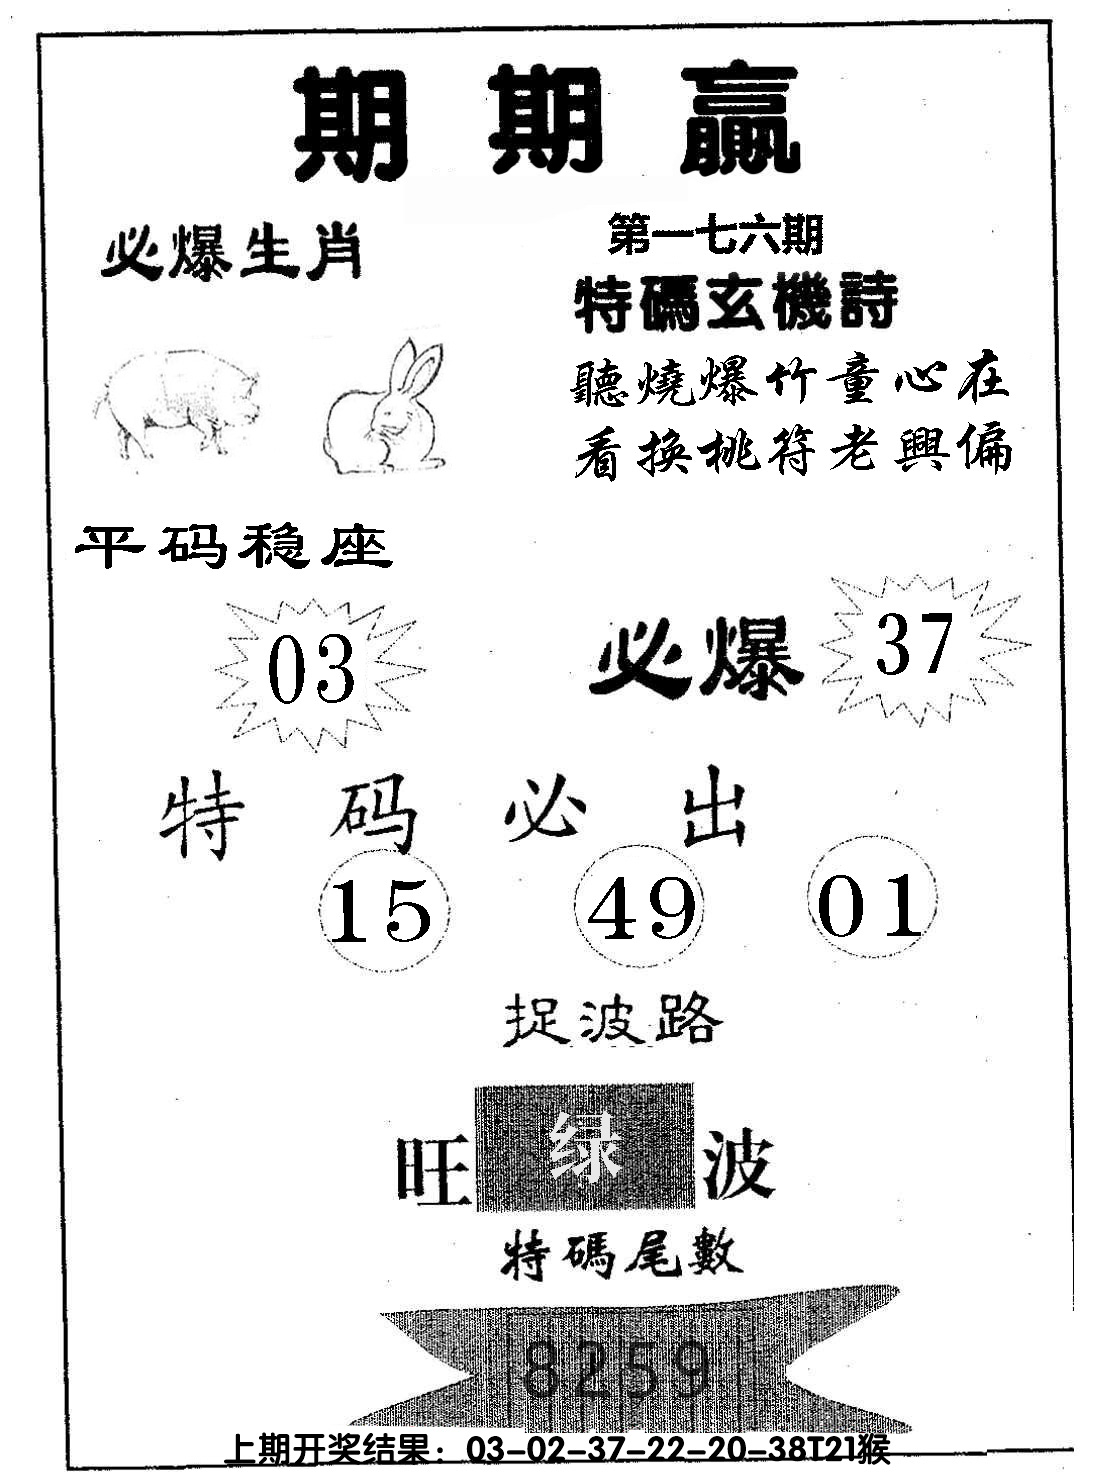 期期赢
必爆生肖
第一七六期
特碼玄機詩
聽燒爆竹童心在
看換桃符老興偏
平码稳座
03
必爆 37
特码必出
15 49 01
捉波路
旺 绿 波
特碼尾數
8259
上期开奖结果：03-02-37-22-20-38T21猴